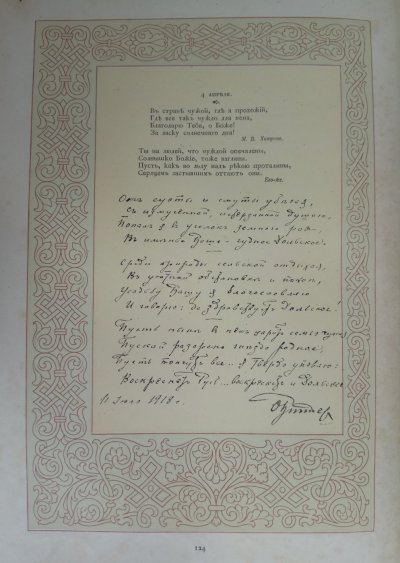 4 АПРѢЛЯ.
Въ странѣ чужой, гдѣ я прохожій,
Гдѣ все такъ чуждо для меня,
Благодарю Тебя, о Боже!
За ласку солнечнаго дня!
М. В. Хитрово.
Ты на людей, что чуждой опечалены,
Солнышко Божіе, тоже взгляни.
Пусть, какъ во льду надъ рѣкою проталины,
Сердцемъ застывшимъ оттаютъ они.
Отъ суеты и смуты убѣгая,
Съ измученной, истерзанной душою,
Попалъ я въ уголокъ земного рая,
Въ имѣніе Ваше - чудное Дольское.
Среди природы сельской отдыхая,
Въ уютной обстановкѣ и покоѣ,
Усадьбу Вашу я благословляю
И говорю: да здравствуетъ Дольское!
Пусть нынѣ въ
Пускай разорено гнѣздо родное,
Пусть все.. я твердо уповаю:
Воскреснетъ Русь... воскреснетъ и Дольское
11 1918 г.
124